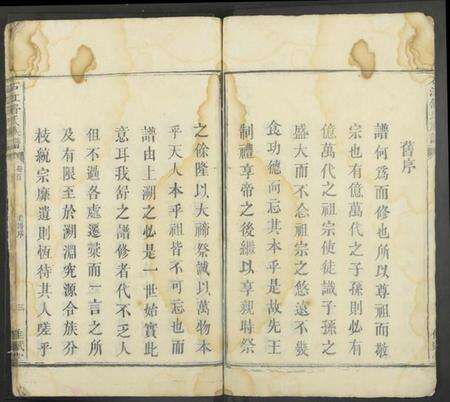 舊序
譜何爲而修也所以尊祖而敬
宗也有億萬代之子孫則必有
億萬代之祖宗使徒識子孫之
盛大而不念祖宗之悠遠不幾
食功德而忘其本乎是故先王
制禮享帝之後繼以享親時祭
之餘隆以大禘祭誠以萬物本
乎天人本乎祖皆不可忘也而
譜由上溯之必是一世始實此
意耳我舒之譜修者代不乏人
但不過各處遷葉而一言之所
及有限至於溯淵究源令族分
枝統宗廉遺則恆待其人嗟乎